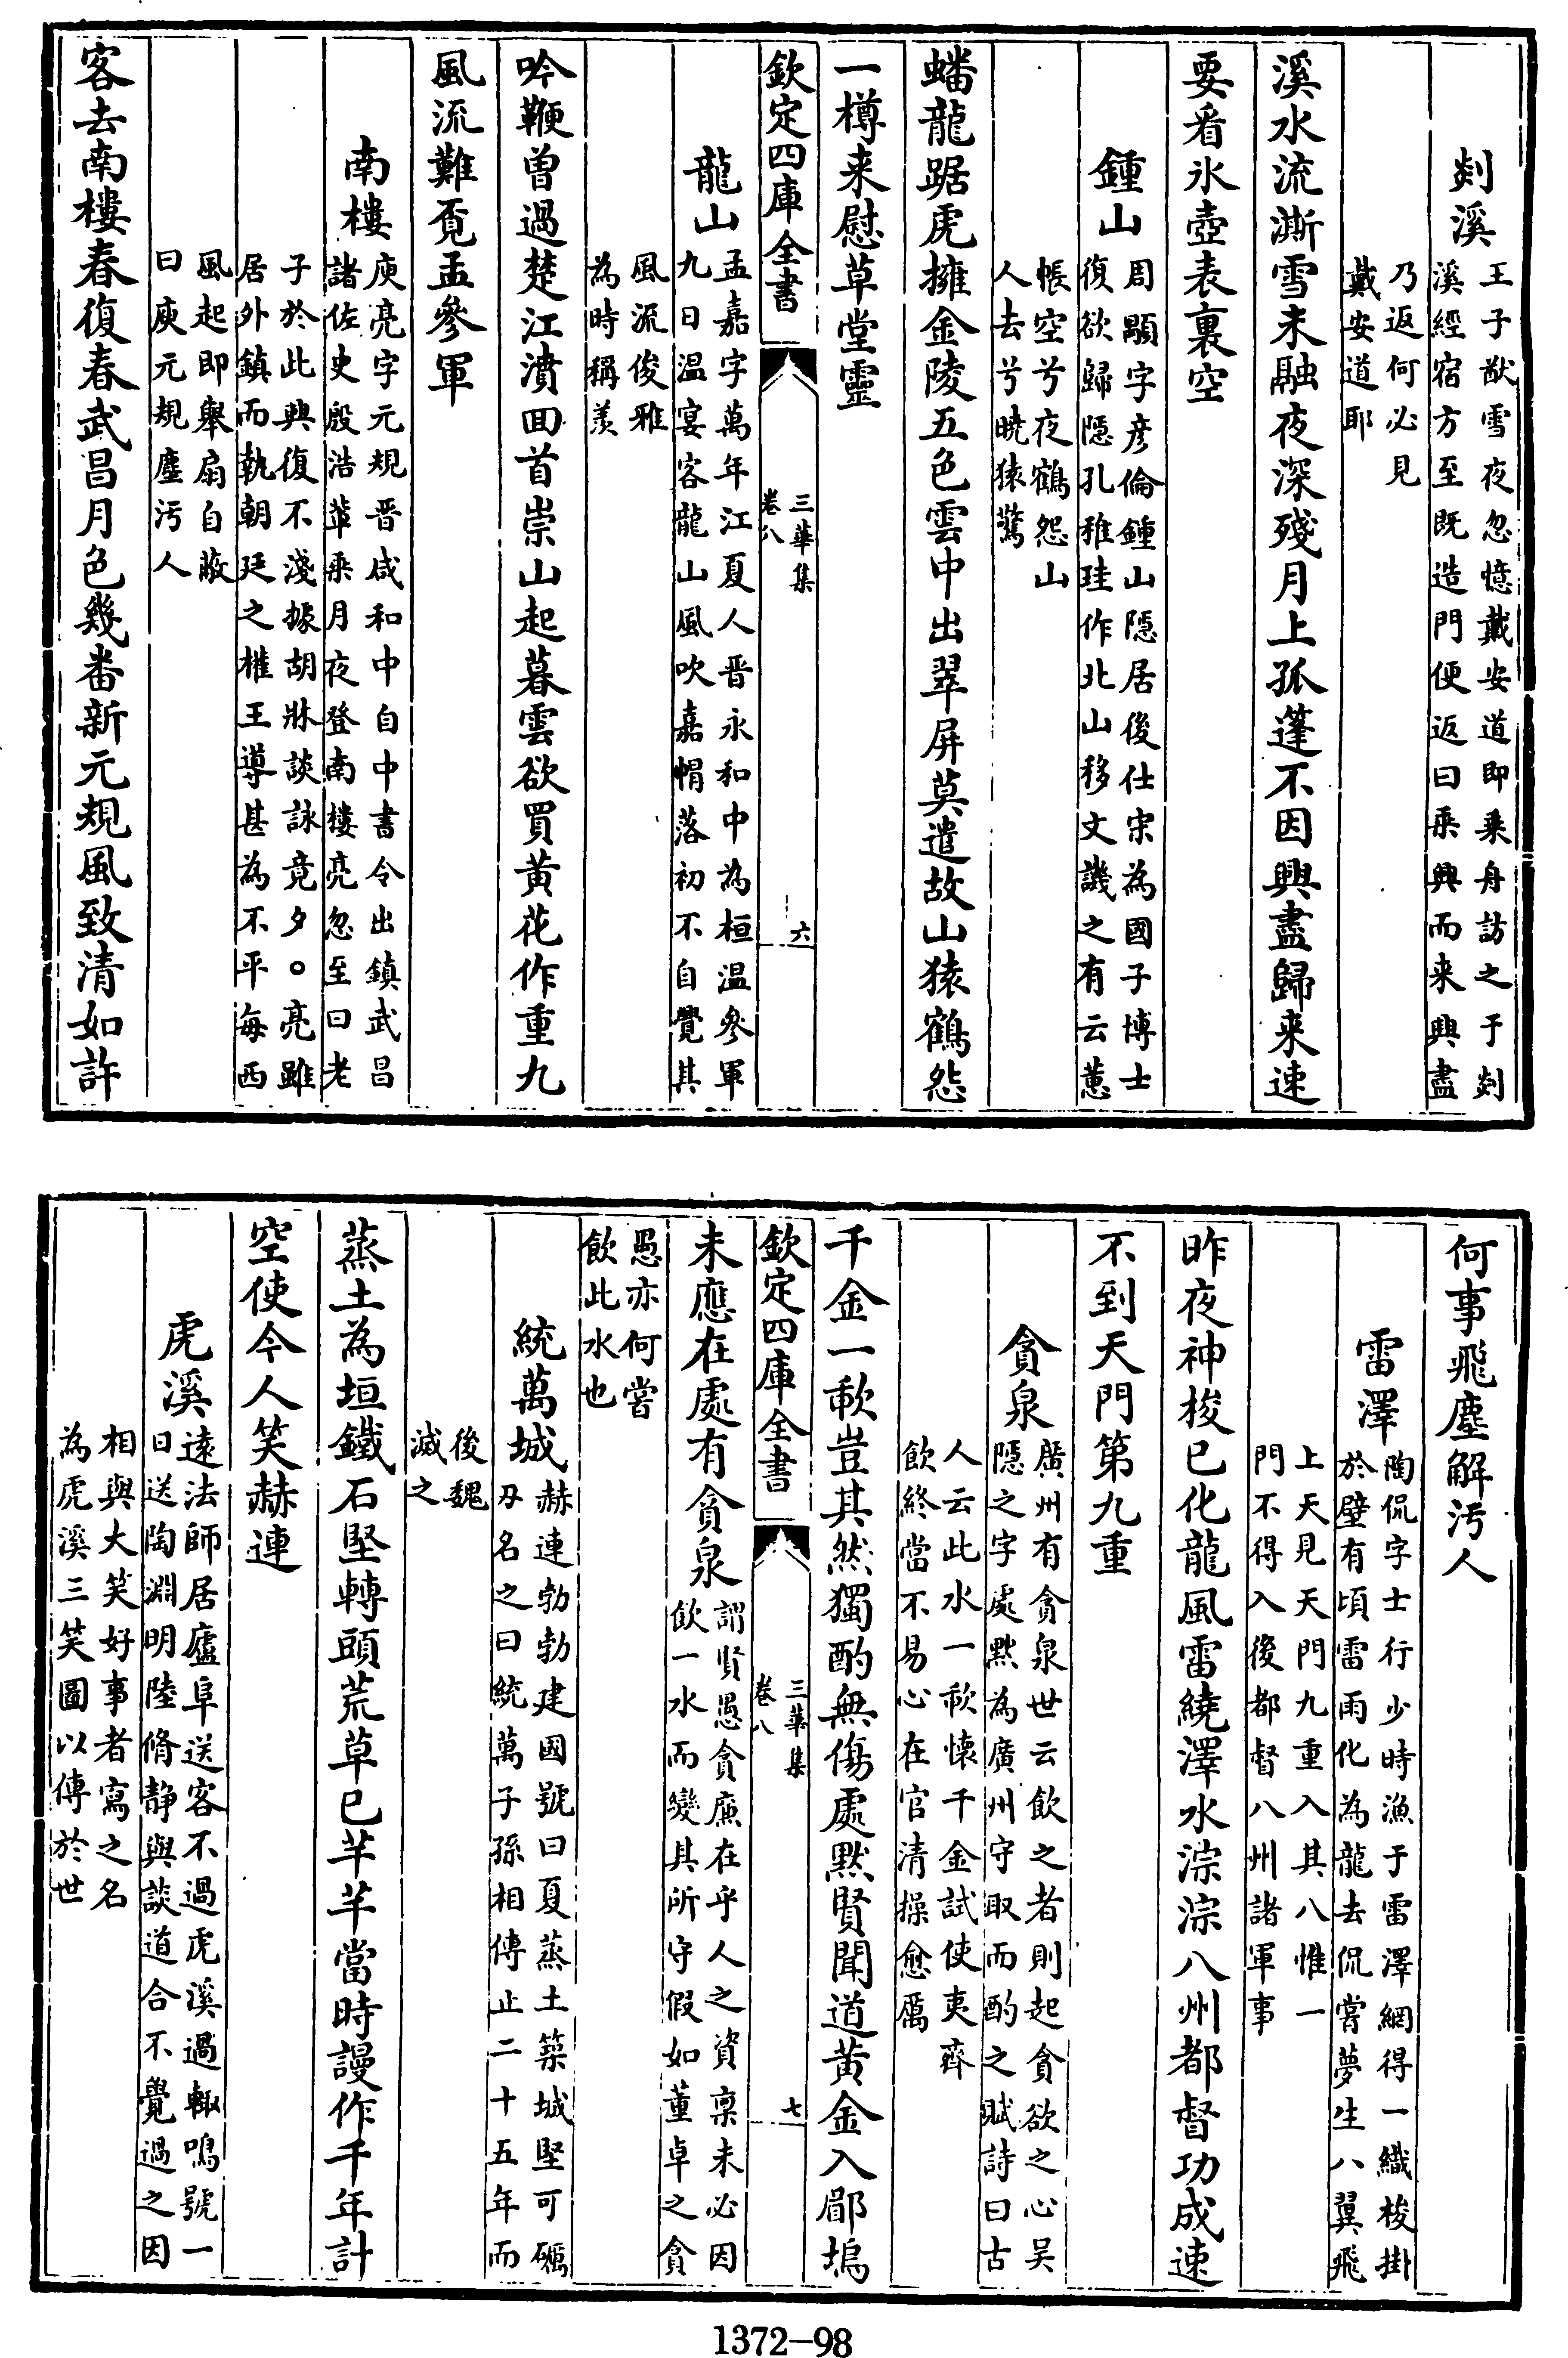 剡溪
王子猷雪夜忽憶戴安道即乗舟訪之于剡
溪經宿方至既造門便返曰乗興而来興盡
乃返何必見
戴安道耶
溪水流澌雪未融夜深殘月上孤蓬不因興盡歸来速
要看氷壺表裏空
鍾山
周顒字彦倫鍾山隠居後仕宋為國子博士
復欲歸隠孔稚珪作北山移文譏之有云蕙
帳空兮夜鶴怨山
人去兮曉猿驚
蟠龍踞虎擁金陵五色雲中出翠屏莫遣故山猿鶴怨
一樽来慰草堂靈
欽定四庫全書
三華集
卷八
六
龍山
孟嘉字萬年江夏人晋永和中為桓溫參軍
九日温宴客龍山風吹嘉帽落初不自覺其
風流俊雅
為時稱羡
吟鞭曽過楚江濆回首崇山起暮雲欲買黄花作重九
風流難覔孟參軍
南樓
庾亮字元規晋咸和中自中書令出鎮武昌
諸佐史殷浩軰乗月夜登南樓亮忽至曰老
子於此興復不淺據胡牀談詠竟夕。亮雖
居外鎮而執朝廷之權王導甚為不平每西
風起即舉扇自蔽
曰庾元規塵汚人
客去南樓春復春武昌月色幾畨新元規風致清如許
何事飛塵解汚人
雷澤
陶侃字士行少時漁于雷澤網得一織梭掛
於壁有頃雷雨化為龍去侃嘗夢生八翼飛
上天見天門九重入其八惟一
門不得入後都督八州諸軍事
昨夜神梭已化龍風雷繞澤水淙淙八州都督功成速
不到天門第九重
貪泉
廣州有貪泉世云飲之者則起貪欲之心吴
隠之字處黙為廣州守取而酌之賦詩曰古
人云此水一歃懐千金試使夷齊
飲終當不易心在官清操愈厲
千金一歃豈其然獨酌無傷處黙賢聞道黄金入郿塢
欽定四庫全書
三華集
卷八
七
未應在處有貪泉
謂賢愚貪廉在乎人之資禀未必因
飲一水而變其所守假如董卓之貪
愚亦何嘗
飲此水也
統萬城
赫連勃勃建國號曰夏蒸土築城堅可礪
刄名之曰統萬子孫相傳止二十五年而
後魏
滅之
蒸土為垣鐵石堅轉頭荒草已芊芊當時謾作千年計
空使今人笑赫連
虎溪
逺法師居廬阜送客不過虎溪過輙鳴號一
日送陶淵明陸脩静與談道合不覺過之因
相與大笑好事者寫之名
為虎溪三笑圖以傳於世
1372-98